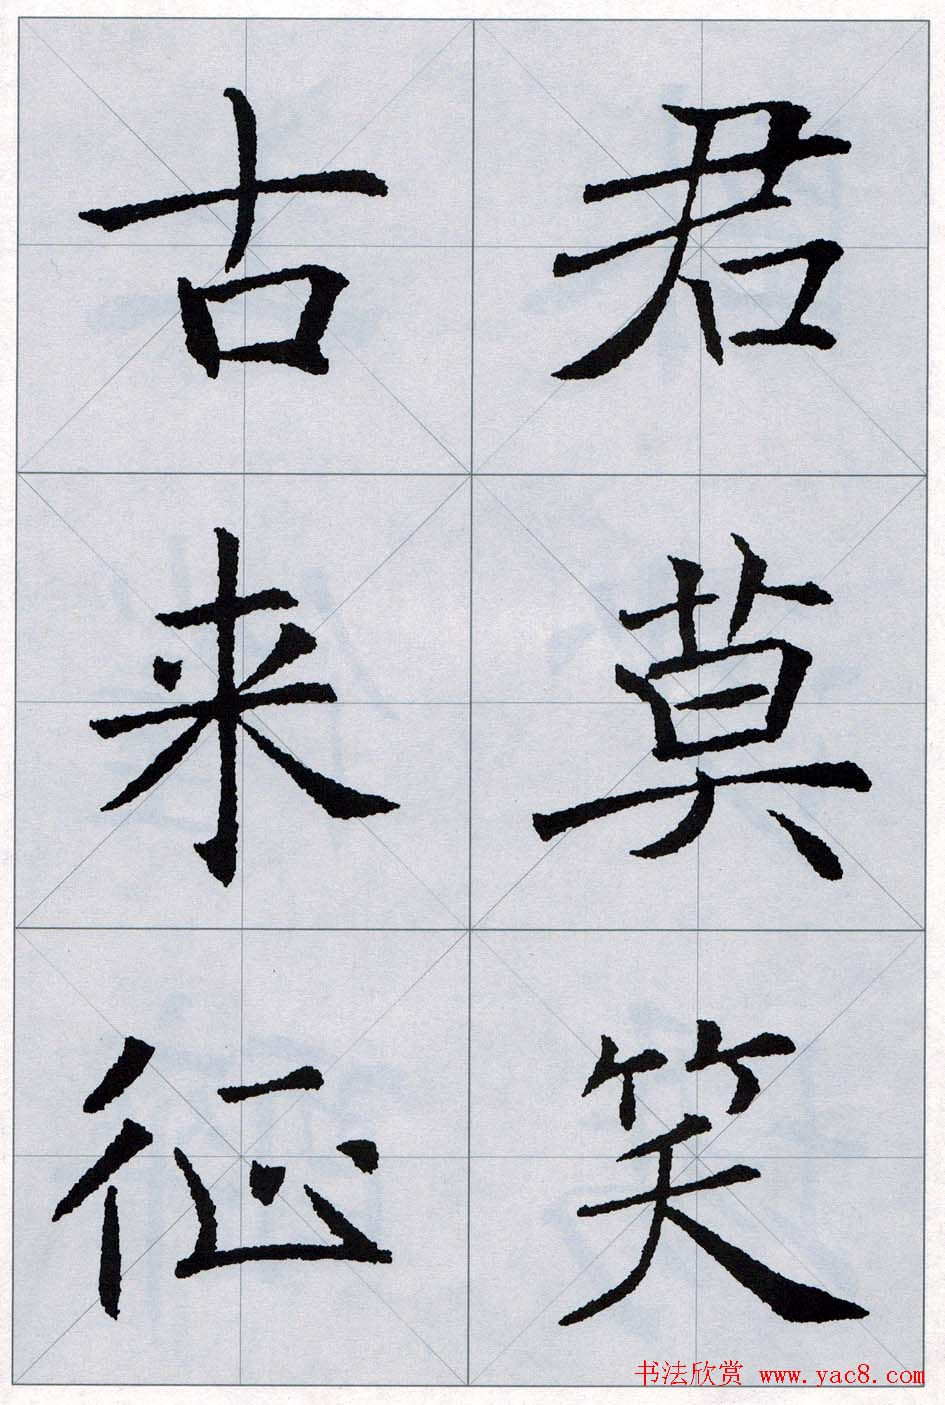 君莫笑
古来征
书法欣赏 www.yac8.com